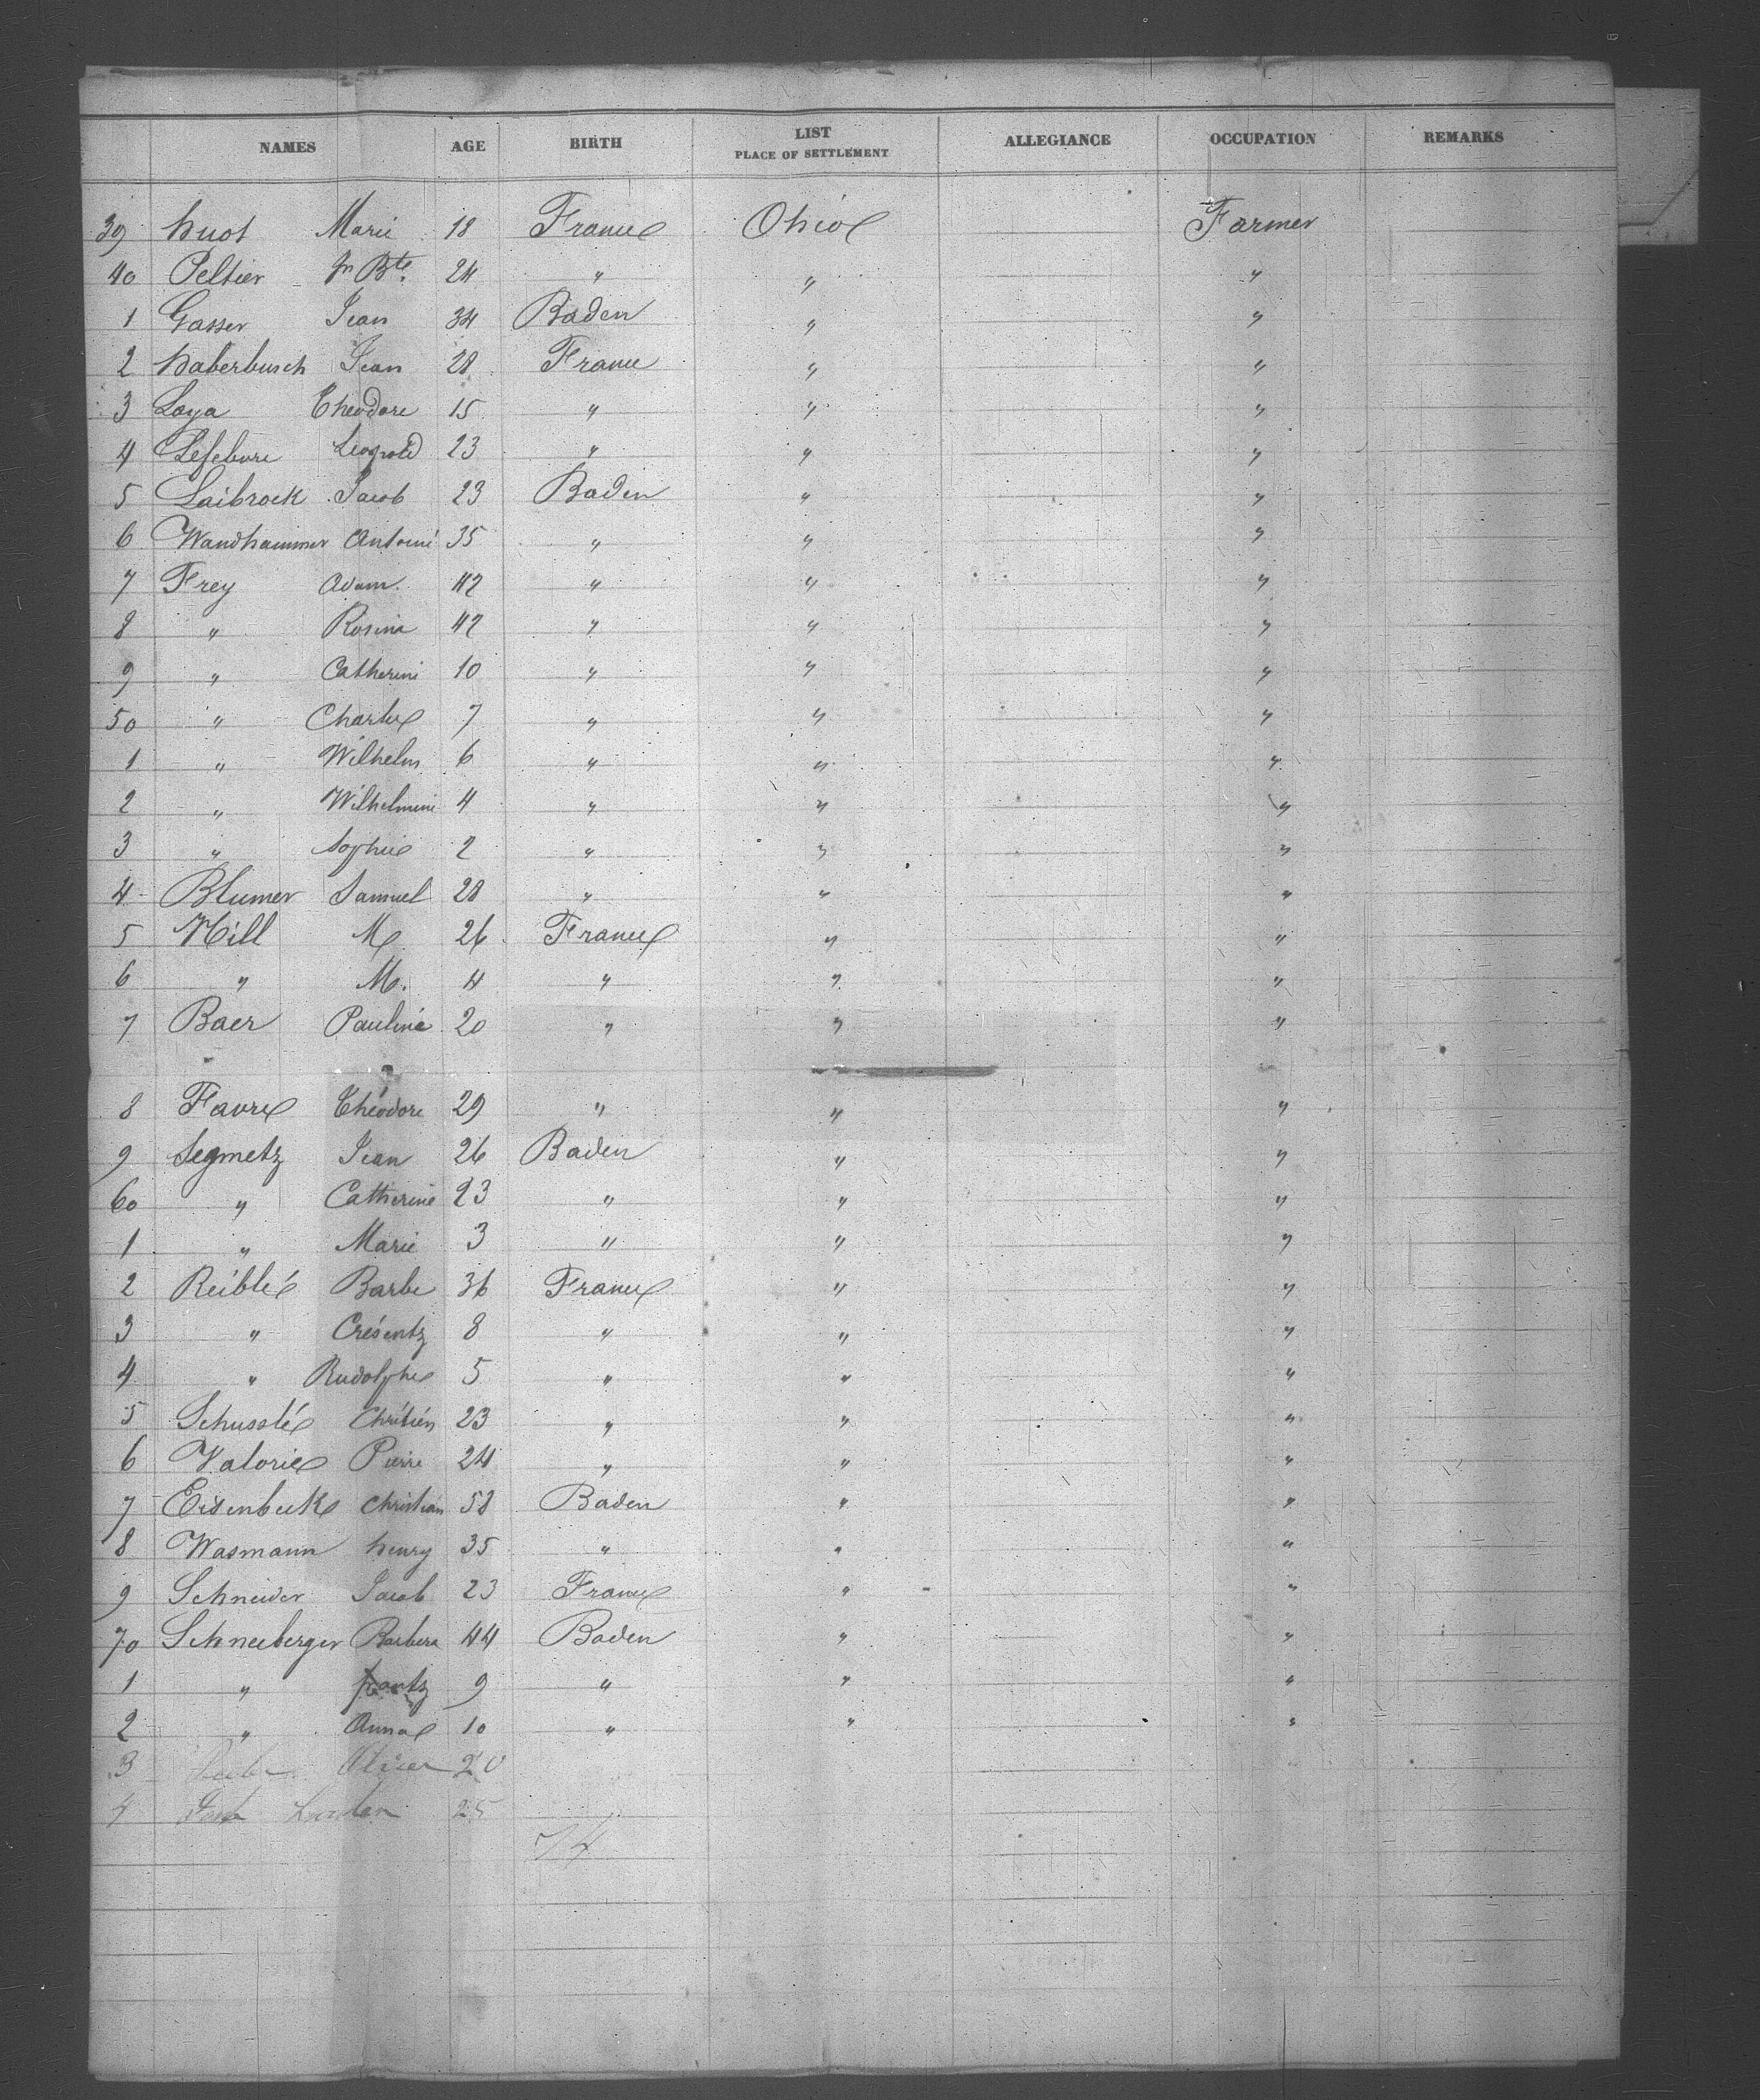 NAMES AGE BIRTH LIST PLACE OF SETTLEMENT ALLEGIANCE OCCUPATION REMARKS
39 Huot Marie 18 France Ohio Farmer
40 Peltier Jn Bte. 24 " " "
1 Gasser Jean 34 Baden " "
2 Haberbusch Jean 28 France " "
3 Loya Theodore 15 " " "
4 Lefebvre Leopold 23 " " "
5 Laibrock Jacob 23 Baden " "
6 Wandhammer Antoine 35 " " "
7 Frey Adam 42 " " "
8 " Rosina 42 " " "
9 " Catherine 10 " " "
50 " Charles 7 " " "
1 " Wilhelm 6 " " "
2 " Wilhelmine 4 " " "
3 " Sophie 2 " " "
4 Blumer Samuel 28 " " "
5 Hill M 26 France " "
6 " M. 4 " " "
7 Baer Pauline 20 " " "
8 Favre Théodore 29 " " "
9 Segmetz Jean 26 Baden " "
60 " Catherine 23 " " "
1 " Marie 3 " " "
2 Reiblé Barbe 36 France " "
3 " Crésentz 8 " " "
4 " Rudolphe 5 " " "
5 Schusslé Chrétien 23 " " "
6 Valorie Pierre 24 " " "
7 Eisenbeck Christian 58 Baden " "
8 Wasmann Henry 35 " " "
9 Schneider Jacob 23 France " "
70 Schneeberger Barbera 44 Baden " "
1 " frantz 9 " " "
2 " Anna 10 " " "
3 20
4 25
74